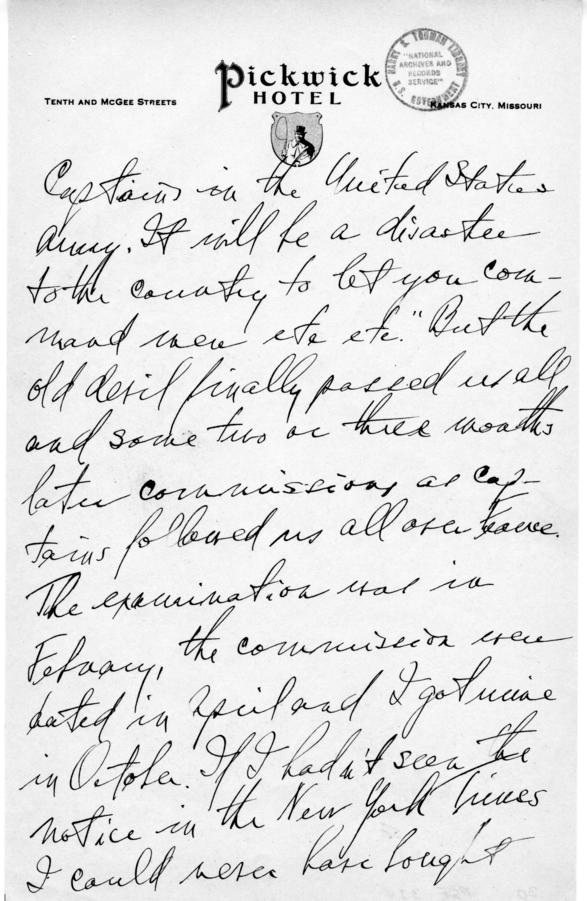 Pickwick
HOTEL
TENTH AND MCGEE STREETS
KANSAS CITY, MISSOURI
HARRY S. TRUMAN LIBRARY
"NATIONAL
ARCHIVES AND
RECORDS
SERVICE"
U.S. GOVERNMENT
Captains in the United States
Army. It will be a disaster
to the country to let you com-
mand men etc etc." But the
old devil finally passed us all
and some two or three months
later commissions as cap-
tains followed us all over France.
The examination was in
February, the commission were
dated in April and I got mine
in October. If I hadn't seen the
notice in the New York Times
I could never have bought